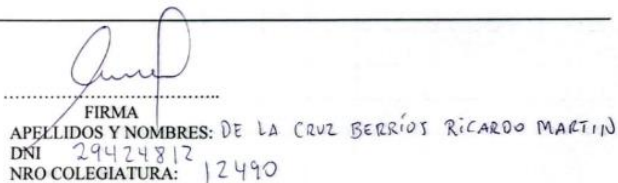 FIRMA
APELLIDOS Y NOMBRES: DE LA CRUZ BERRÍOS RICARDO MARTIN
DNI 29424812
NRO COLEGIATURA: 12490